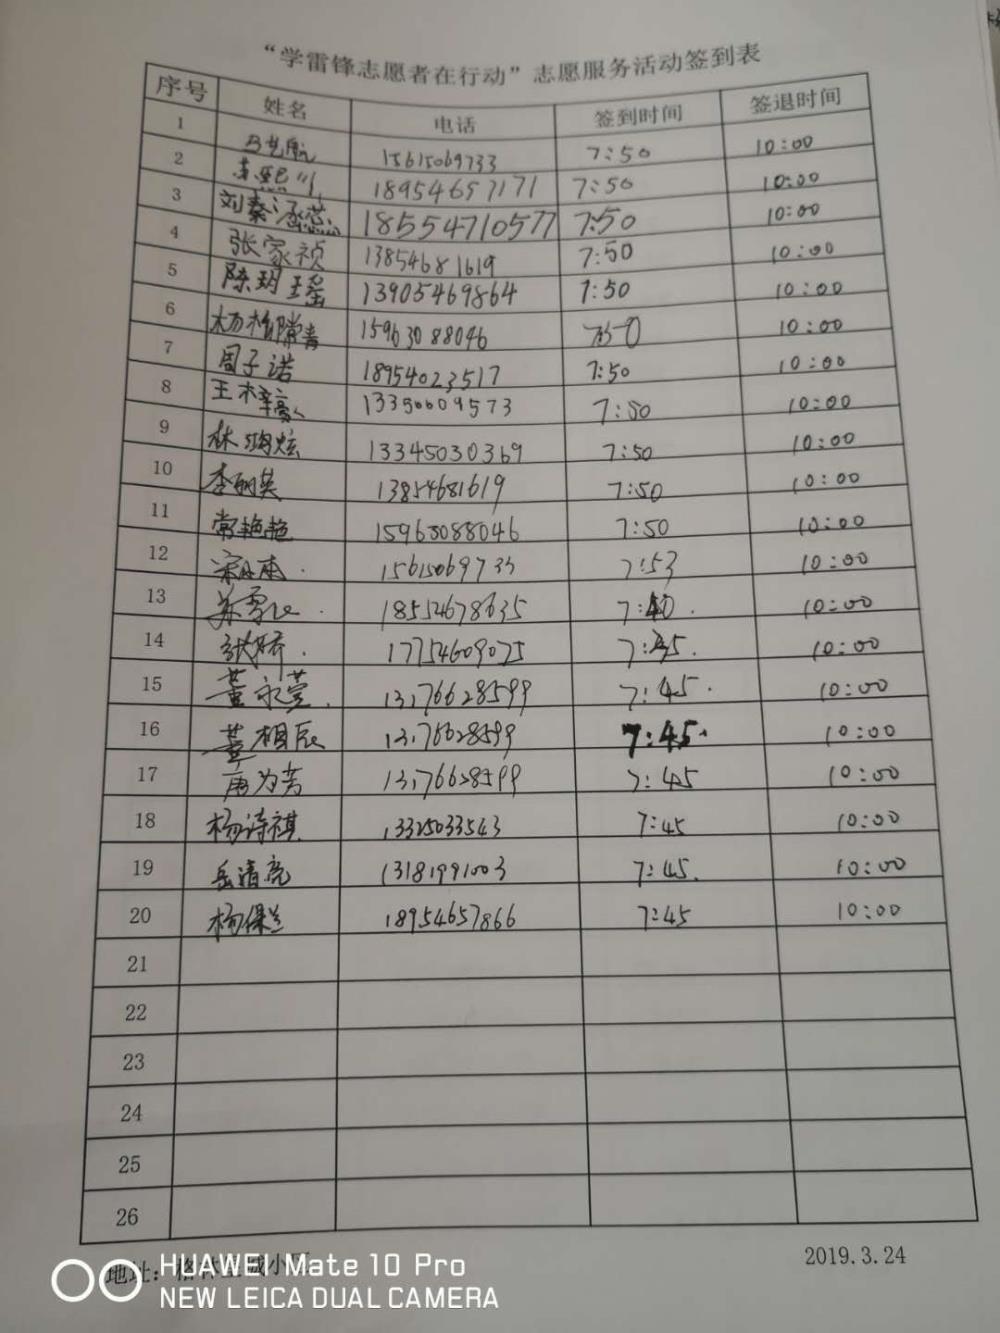 “学雷锋志愿者在行动”志愿服务活动签到表
序号 姓名 电话 签到时间 签退时间
1 马艺航 15615069733 7:50 10:00
2 苏熙川 18954657171 7:50 10:00
3 刘秦涵蕊 18554710577 7:50 10:00
4 张家祯 13854681619 7:50 10:00
5 陈玥瑶 13905469864 7:50 10:00
6 杨柳常青 15963088046 10:00
7 周子诺 18954023517 7:50 10:00
8 王梓豪 13350609573 7:50 10:00
9 林鸿炫 13345030369 7:50 10:00
10 李丽英 13854681619 7:50 10:00
11 常艳艳 15963088046 7:50 10:00
12 15615069733 7:53 10:00
13 18554678635 7:40 10:00
14 张娇 17754609075 10:00
15 董永萱 13176628599 7:45 10:00
16 董相辰 13176628599 7:45 10:00
17 唐为芳 13176628599 7:45 10:00
18 杨诗祺 13325033543 7:45 10:00
19 岳清亮 13181991003 7:45 10:00
20 杨保兰 18954657866 7:45 10:00
21
22
23
24
25
26
地址: 小 2019.3.24
HUAWEI Mate 10 Pro
NEW LEICA DUAL CAMERA